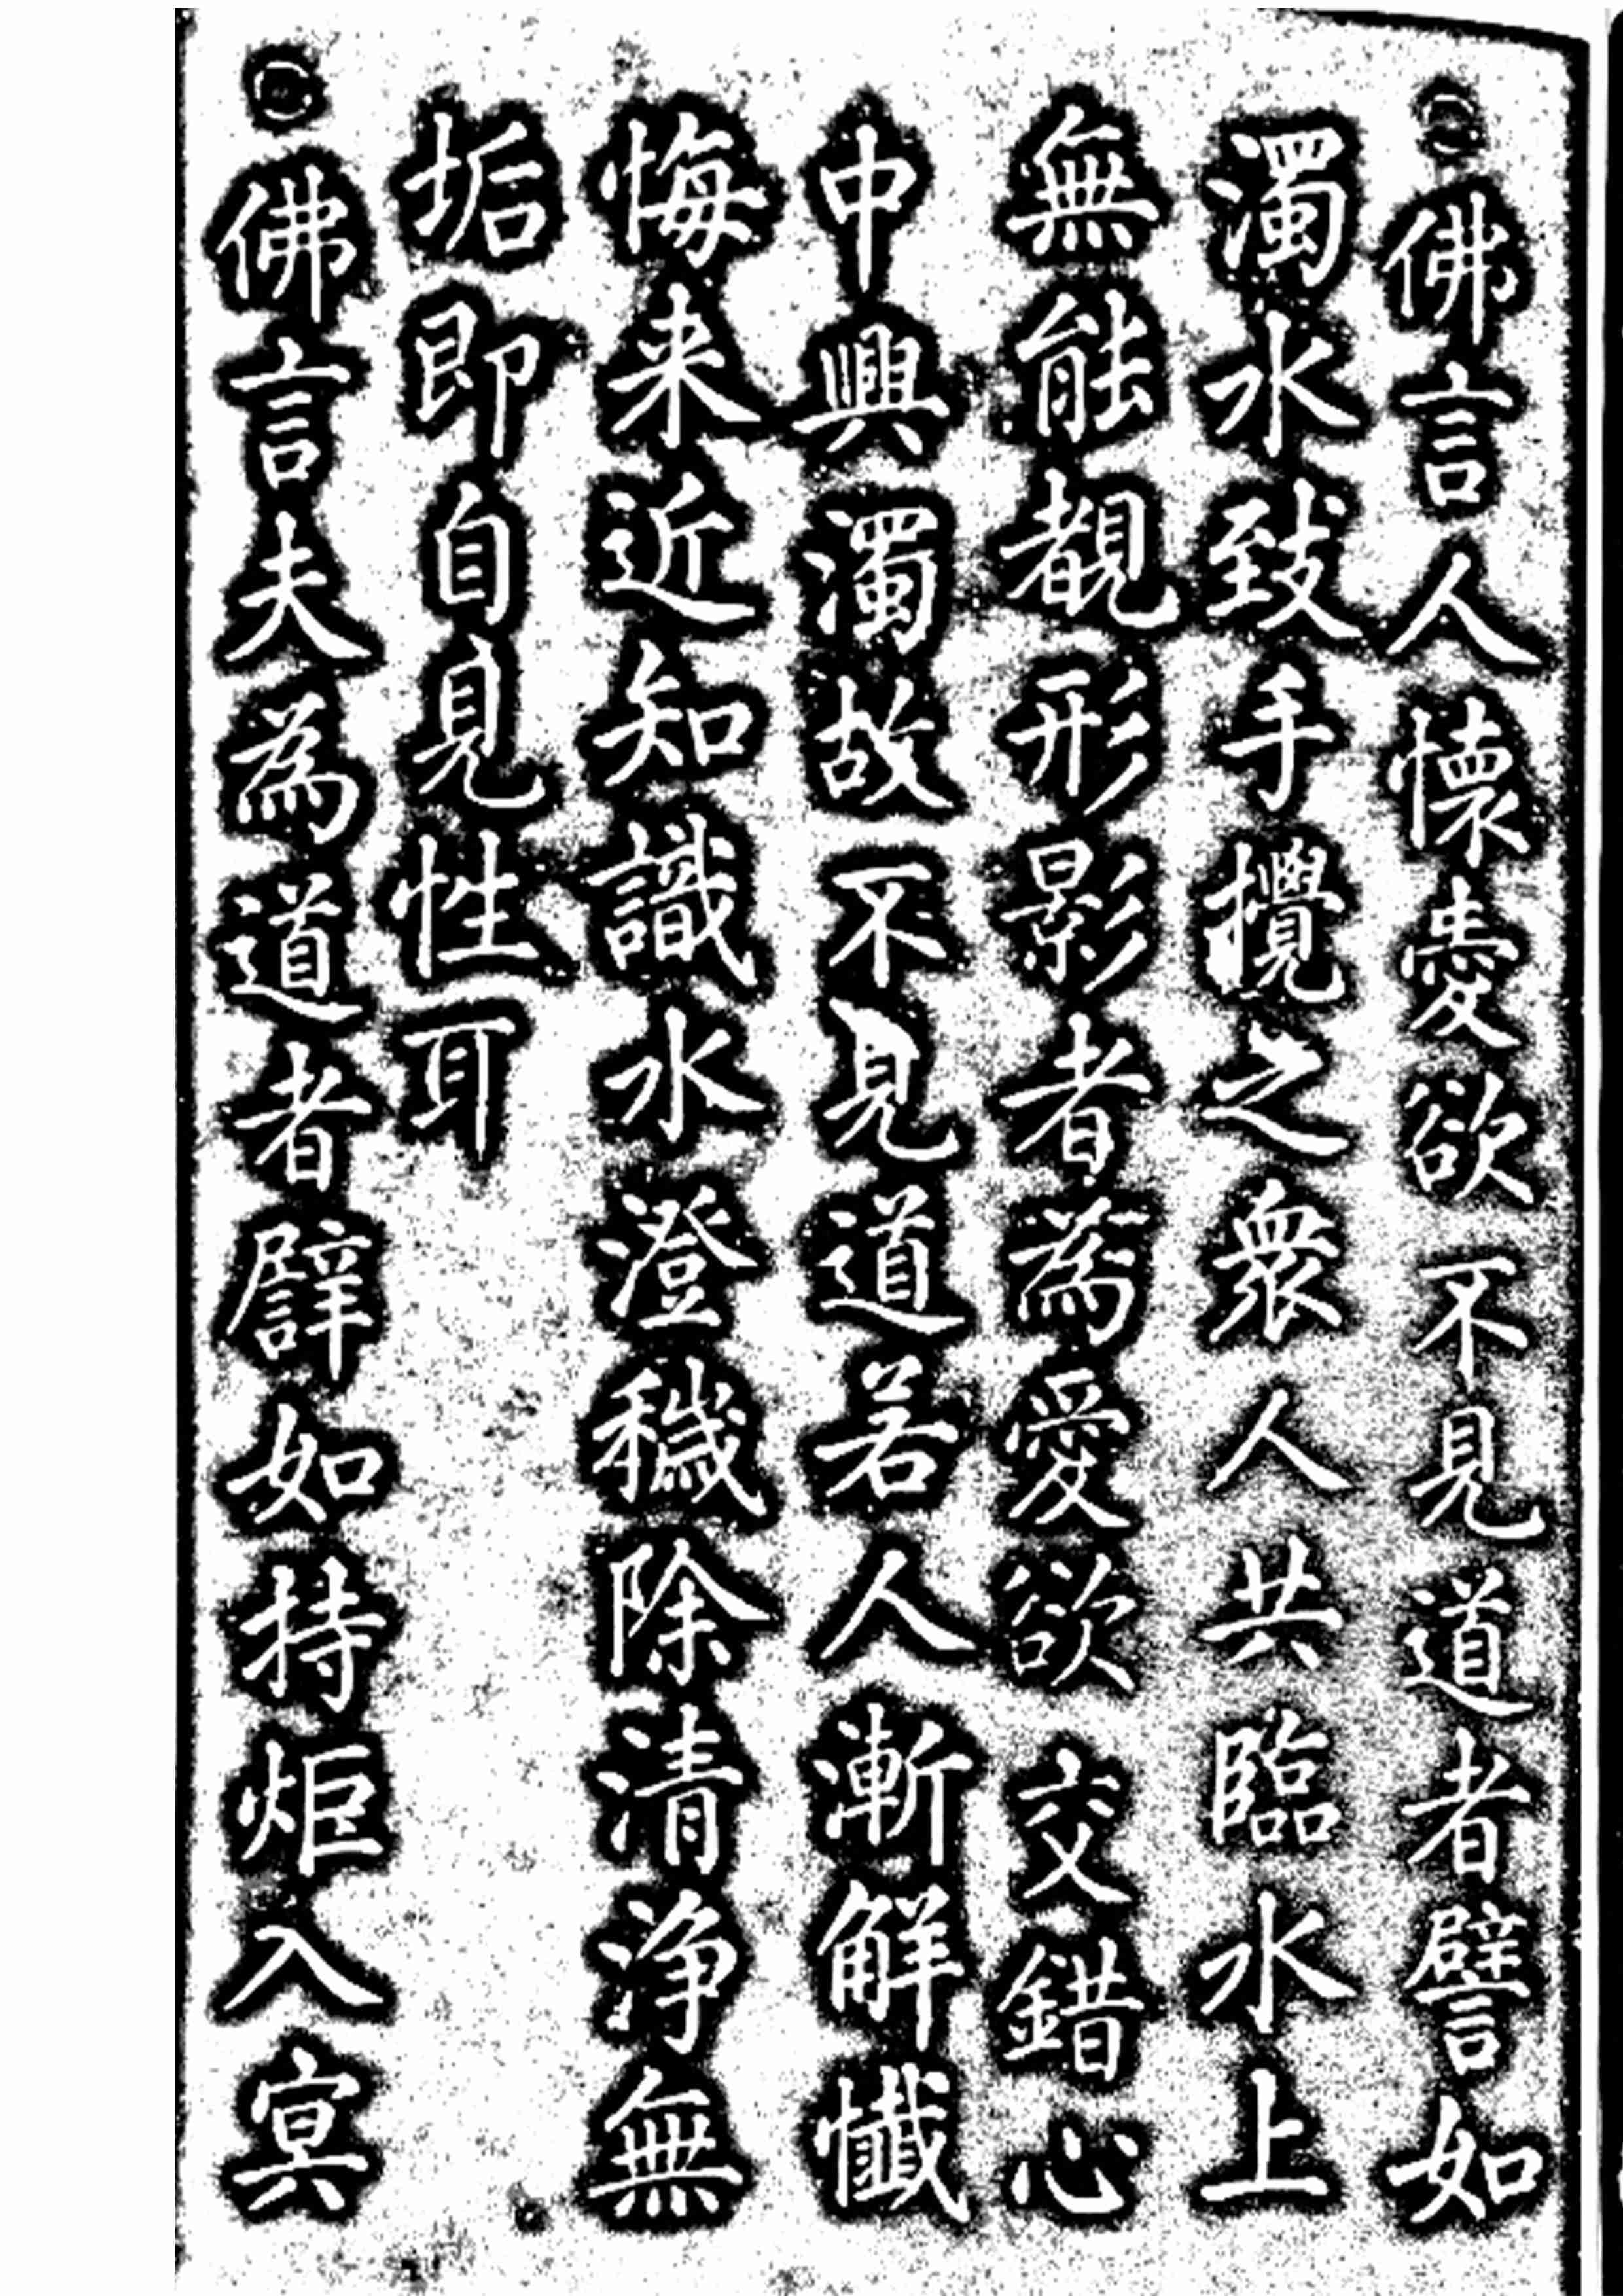 ○佛言人懷愛欲不見道者譬如
濁水致手攪之衆人共臨水上
無能覩形影者為愛欲交錯心
中興濁故不見道若人漸解懺
悔来近知識水澄穢除清淨無
垢即自見性耳
○佛言夫為道者譬如持炬入冥